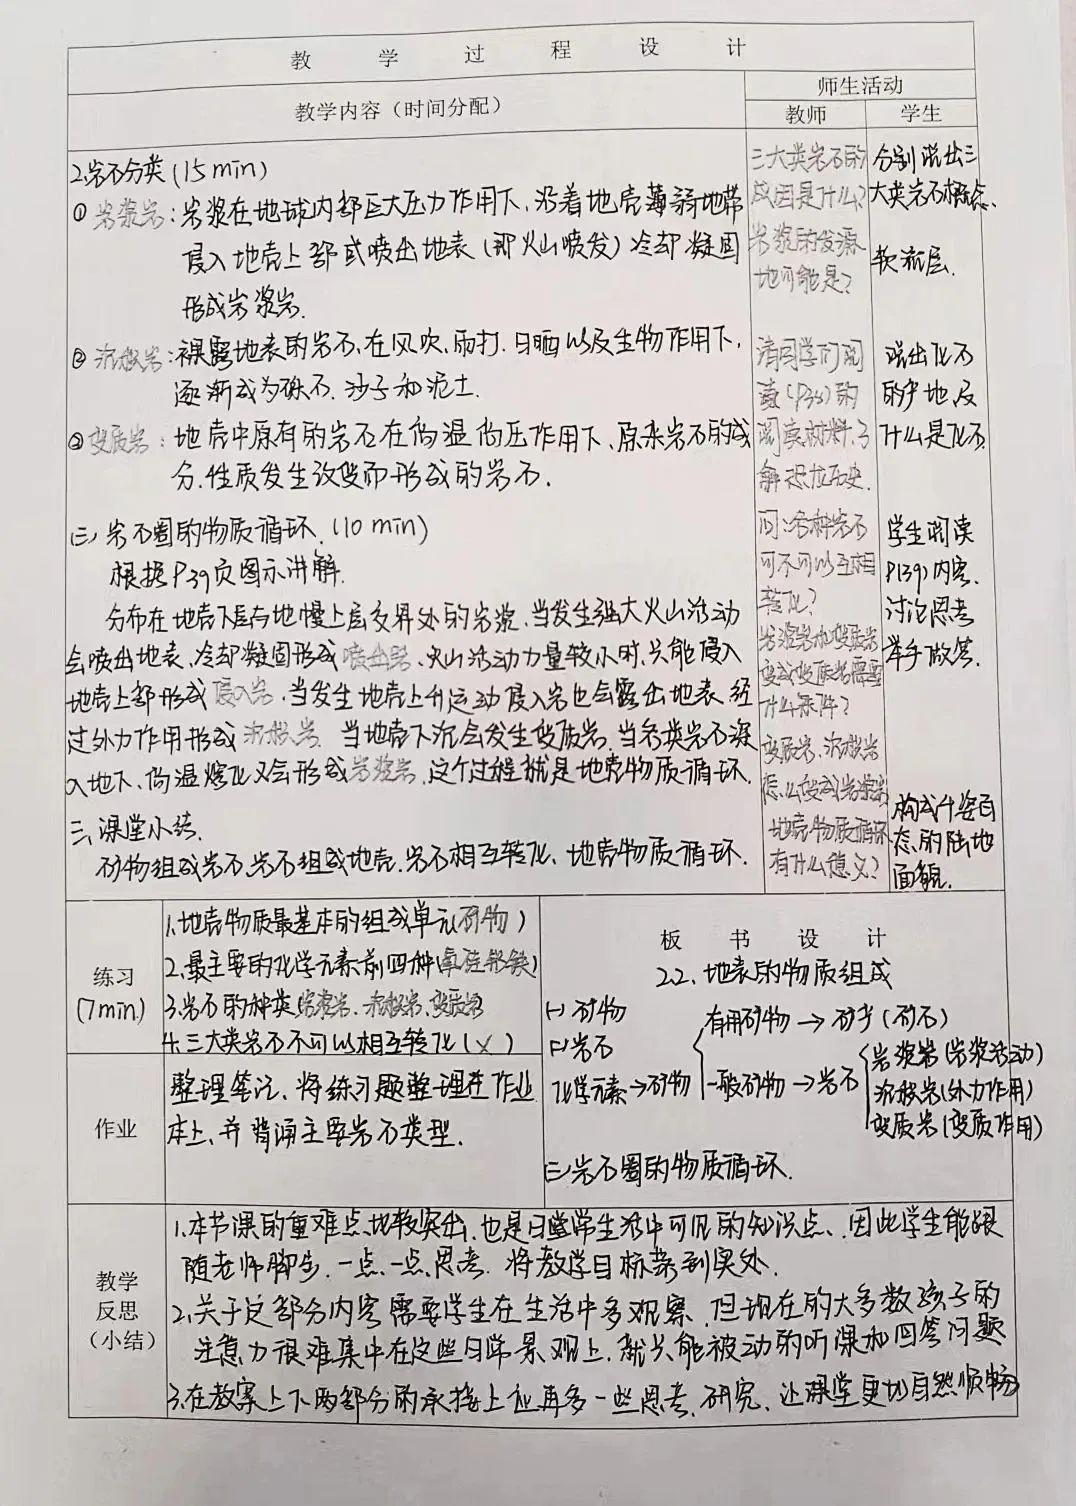 教学过程设计
教学内容（时间分配）
师生活动
教师
学生
2.岩石分类(15min)
①岩浆岩:岩浆在地球内部巨大压力作用下,沿着地壳薄弱地带
侵入地壳上部或喷出地表(即火山喷发)冷却凝固
形成岩浆岩.
②沉积岩:裸露地表的岩石,在风吹、雨打、日晒以及生物作用下,
逐渐成为砾石、沙子和泥土.
③变质岩:地壳中原有的岩石在高温高压作用下、原来岩石的成
分.性质发生改变而形成的岩石.
(三)岩石圈的物质循环.(10min)
根据P39页图示讲解.
分布在地壳下层与地幔上层交界处的岩浆,当发生强大火山活动
会喷出地表、冷却凝固形成喷出岩、火山活动力量较小时,只能侵入
地壳上部形成侵入岩.当发生地壳上升运动侵入岩也会露出地表、经
过外力作用形成沉积岩.当地壳下沉会发生变质岩.当各类岩石深
入地下、高温熔化又会形成岩浆岩.这个过程就是地壳物质循环.
三.课堂小结.
矿物组成岩石,岩石组成地壳.岩石相互转化、地壳物质循环.
三大类岩石的
成因是什么?
岩浆的发源
地可能是?
请同学们阅
读(P38)的
阅读材料,了
解恐龙历史.
问:各种岩石
可不可以互相
转化?
岩浆岩和变质岩
变成变质岩需要
什么条件?
变质岩、沉积岩
怎么变成岩浆岩
地壳物质循环
有什么意义?
分别说出三
大类岩石概念、
软流层.
说出化石
的产地及
什么是化石.
学生阅读
P(39)内容、
讨论思考
举手做答.
构成千姿百
态的陆地
面貌.
练习
(7min)
1.地壳物质最基本的组成单元(矿物)
2.最主要的化学元素前四种(氧硅铝铁)
3.岩石的种类(岩浆岩、沉积岩、变质岩
4.三大类岩石不可以相互转化(×)
作业
整理笔记、将练习题整理在作业
本上、并背诵主要岩石类型.
板书设计
2.2.地表的物质组成
(一)矿物
(二)岩石
化学元素→矿物
有用矿物→矿产(矿石)
一般矿物→岩石
岩浆岩(岩浆活动)
沉积岩(外力作用)
变质岩(变质作用)
(三)岩石圈的物质循环.
教学
反思
（小结）
1.本节课的重难点比较突出,也是日常学生活中可见的知识点、因此学生能跟
随老师脚步、一点一点思考.将教学目标落到实处.
2.关于这部分内容需要学生在生活中多观察,但现在的大多数孩子的
注意力很难集中在这些日常景观上,就只能被动的听课和回答问题
3.在教案上下两部分的承接上应再多一些思考、研究、让课堂更加自然顺畅